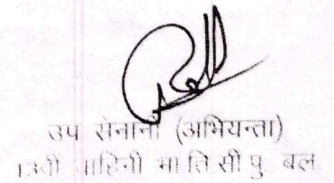 उप सेनानी (अभियन्ता)
13वी वाहिनी भा ति सी पु बल